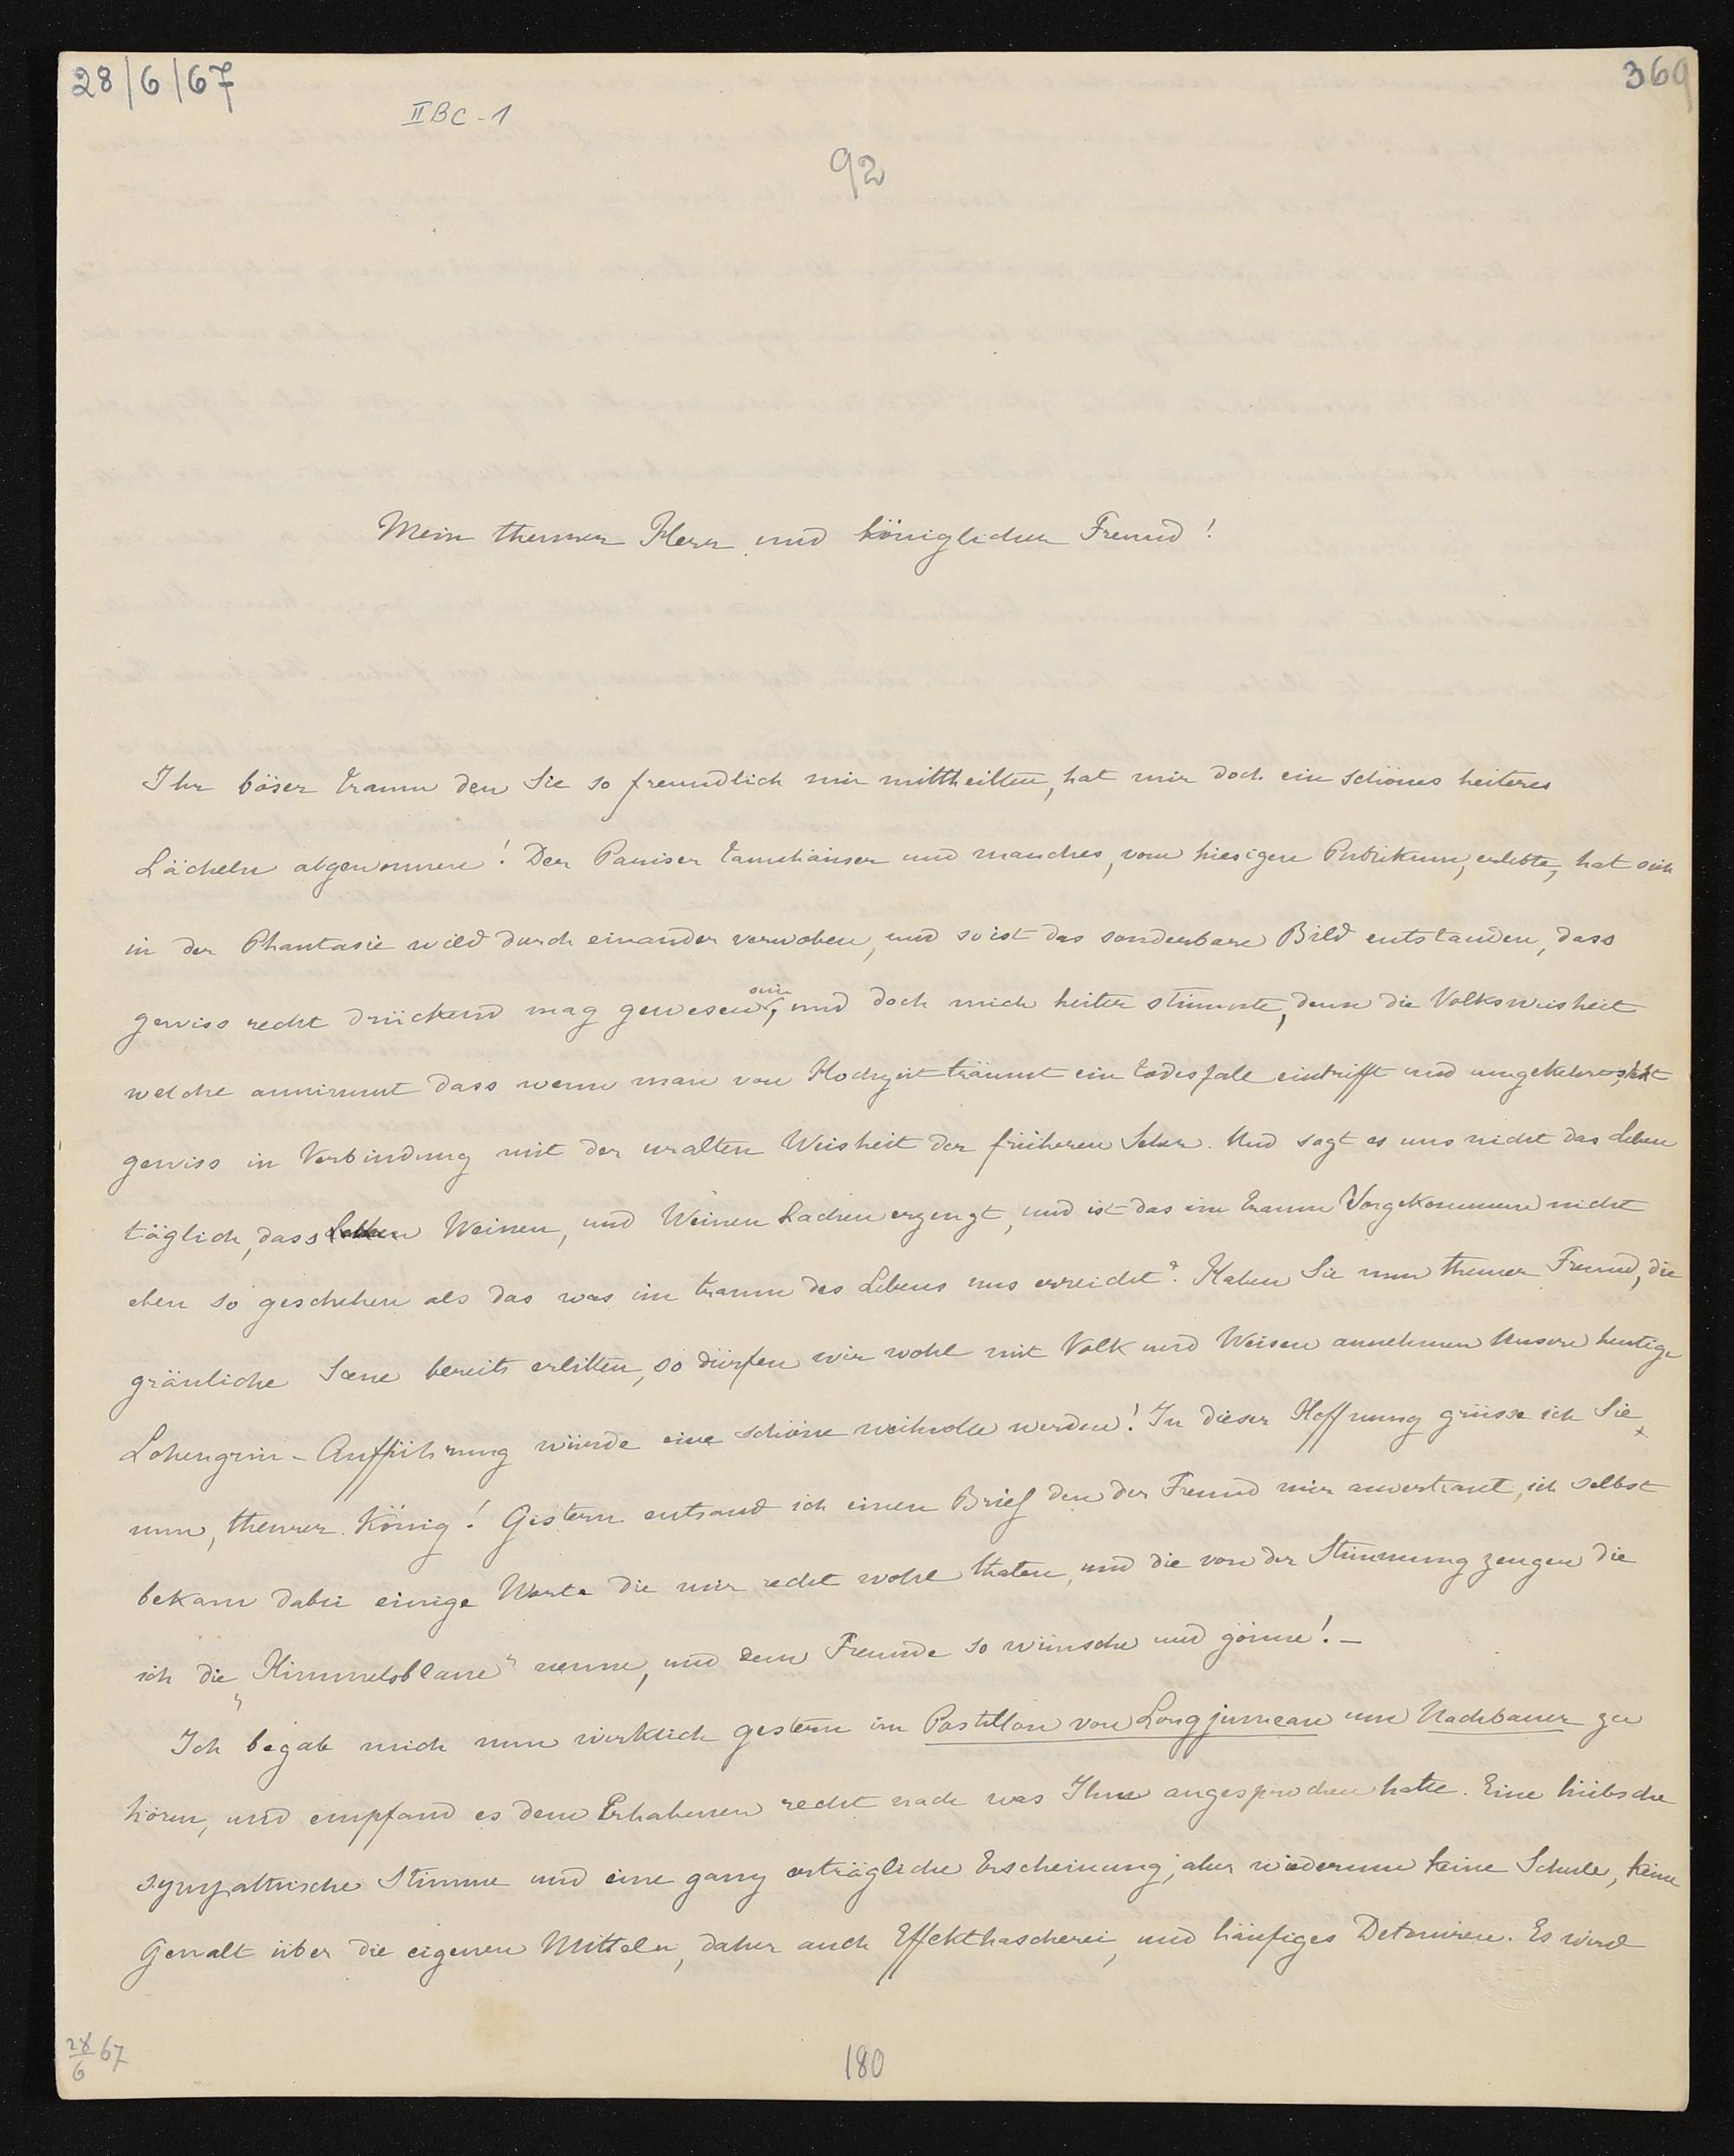 28/6/67
369
II BC - 1
92
Mein theurer Herr und königlicher Freund!
Ihr böser Traum den Sie so freundlich mir mittheilten, hat mir doch ein schönes heiteres
Lächeln abgewonnen! Der Pariser Tannhäuser und manches, vom hiesigen Publikum, erlebte, hat sich
in der Phantasie wild durch einander verwoben, und so ist das sonderbare Bild entstanden, dass
gewiss recht drückend mag gewesen sein, und doch mich heiter stimmte, denn die Volksweisheit
welche annimmt dass wenn man von Hochzeit träumt ein Todesfall eintrifft und umgekehrt, steht
gewiss in Verbindung mit der uralten Weisheit der früheren Seher. Und sagt es uns nicht das Leben
täglich, dass Lachen Weinen, und Weinen Lachen erzeugt, und ist das im Traum Vorgekommene nicht
eben so geschehen als das was im Traum des Lebens uns erreicht? Haben Sie nun theurer Freund, die
gräuliche Scene bereits erlitten, so dürfen wir wohl mit Volk und Weisen annehmen Unsere heutige
Lohengrin-Aufführung würde eine schöne weihvolle werden! In dieser Hoffnung grüsse ich Sie
nun, theurer König! Gestern entsand ich einen Brief den der Freund mir anvertraut, ich selbst
bekam dabei einige Worte die mir recht wohl thaten, und die von der Stimmung zeugen die
ich die „Himmelsblaue" nenne, und dem Freunde so wünsche und gönne! —
Ich begab mich nun wirklich gestern im Postillon von Longjumeau um Nachbauer zu
hören, und empfand es dem Erhabenen recht nach was Ihm angesprochen hatte. Eine hübsche
sympathische Stimme und eine ganz erträgliche Erscheinung; aber wiederum keine Schule, keine
Gewalt über die eigenen Mitteln, daher auch Effekthascherei, und häufiges Detoniren. Es wird
28/6 67
180